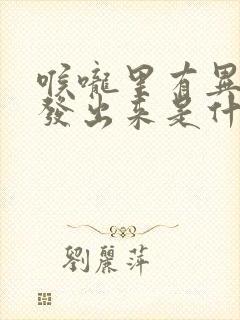 喉嚨里有異
發出来是什
劉麗萍